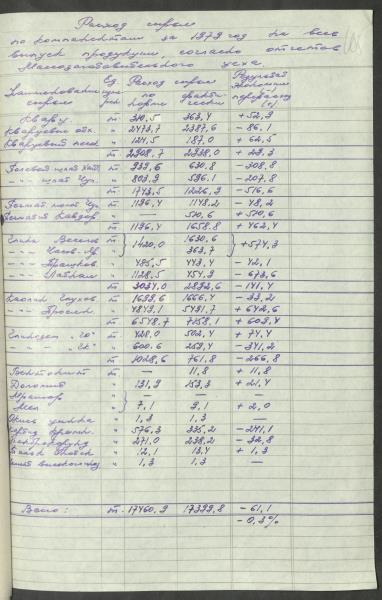 Расход сырья
по компонентам за 1979 год на весь
выпуск продукции, согласно отчетов
Массозаготовительного цеха
Наименование сырья Ед. изм. Расход сырья по норме Расход сырья фактически Результат экономия (-) перерасход (+)
Кварц. т 310,5 363,4 + 52,9
Кварцевые отх. " 2473,7 2387,6 - 86,1
Кварцевый песок " 124,5 187,0 + 62,5
т 2908,7 2938,0 + 29,3
Полевой шпат " 939,6 630.8 - 308,8
-"- шпат Чуп. " 803,9 596.1 - 207.8
т 1743,5 1226,9 - 516,6
Пегмат. Чуп. т 1196,4 1148,2 - 48,2
Пегматит " — 510,6 + 510,6
т 1196,4 1658.8 + 462,4
Глина Весел. т 1420,0 1630,6 +574,3
-"- Часов-Яр " 363,7
-"- " 485,5 443,4 - 42,1
-"- Латнен. " 1128,5 454,9 - 673,6
т 3034,0 2892,6 - 141,4
Каолин Глухов. т 1699,6 1666,4 - 33,2
-"- Просян. " 4849,1 5491,7 + 642,6
т 6548,7 7158,1 + 609,4
Глинозем т 428,0 502,4 + 74,4
-"- " 600.6 259,4 - 341,2
т 1028,6 761,8 - 266,8
Бентонит т — 11,8 + 11,8
Доломит " 131,9 153,3 + 21,4
Мрамор " — — —
Мел " 7,1 9,1 + 2,0
Окись цинка " 1,3 1,3 —
" 576,3 335,2 - 241,1
" 271,0 238,2 - 32,8
" 12,1 13,4 + 1,3
" 1,3 1,3 —
Всего: т 17460,9 17399,8 - 61,1
- 0,3%